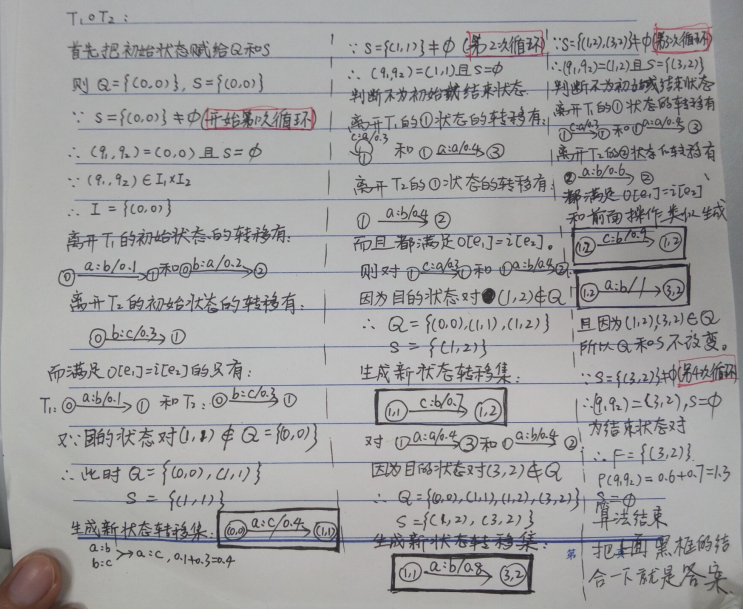 T₁∘T₂:
首先把初始状态赋给Q和S
则 Q={(0,0)}, S={(0,0)}
∵ S={(0,0)}≠φ(开始第1次循环)
∴ (q₁,q₂)=(0,0) 且 S=φ
∵ (q₁,q₂)∈I₁×I₂
∴ I={(0,0)}
离开T₁的初始状态的转移有:
⓪ a:b/0.1→① 和 ⓪ b:a/0.2→②
离开T₂的初始状态的转移有:
⓪ b:c/0.3→①
而满足O[e₁]=i[e₂]的只有:
T₁:⓪ a:b/0.1→① 和 T₂:⓪ b:c/0.3→①
又∵目的状态对(1,1)∉Q={(0,0)}
∴ 此时 Q={(0,0),(1,1)}
S={(1,1)}
生成新状态转移集: (0,0) a:c/0.4→(1,1)
a:b
b:c → a:c, 0.1+0.3=0.4
∵ S={(1,1)}≠φ(第2次循环)
∴ (q₁,q₂)=(1,1)且S=φ
判断不为初始或结束状态
离开T₁的①状态的转移有:
c:a/0.3
① 和 ① a:a/0.4→③
离开T₂的①状态的转移有:
① a:b/0.4→②
而且都满足O[e₁]=i[e₂]。
则对 ① c:a/0.3→① 和 ① a:b/0.4→②
因为目的状态对(1,2)∉Q
∴ Q={(0,0),(1,1),(1,2)}
S={(1,2)}
生成新状态转移集:
(1,1) c:b/0.7→(1,2)
对 ① a:a/0.4→③ 和 ① a:b/0.4→②
因为目的状态对(3,2)∉Q
∴ Q={(0,0),(1,1),(1,2),(3,2)}
S={(1,2),(3,2)}
生成新状态转移集:
(1,1) a:b/0.8→(3,2)
∵S={(1,2),(3,2)}≠φ(第3次循环)
∴(q₁,q₂)=(1,2)且S={(3,2)}
判断不为初始或结束状态
离开T₁的①状态的转移有
① c:a/0.3→① 和 ① a:a/0.4→③
离开T₂的②状态的转移有
② a:b/0.6→②
都满足O[e₁]=i[e₂]
和前面操作类似生成
(1,2) c:b/0.9→(1,2)
(1,2) a:b/1→(3,2)
且因为(1,2),(3,2)∈Q
所以Q和S不改变。
∵S={(3,2)}≠φ(第4次循环)
∴(q₁,q₂)=(3,2),S=φ
为结束状态对
∴F={(3,2)}
ρ(q₁,q₂)=0.6+0.7=1.3
S=φ
算法结束
第
把上面黑框的结
合一下就是答案